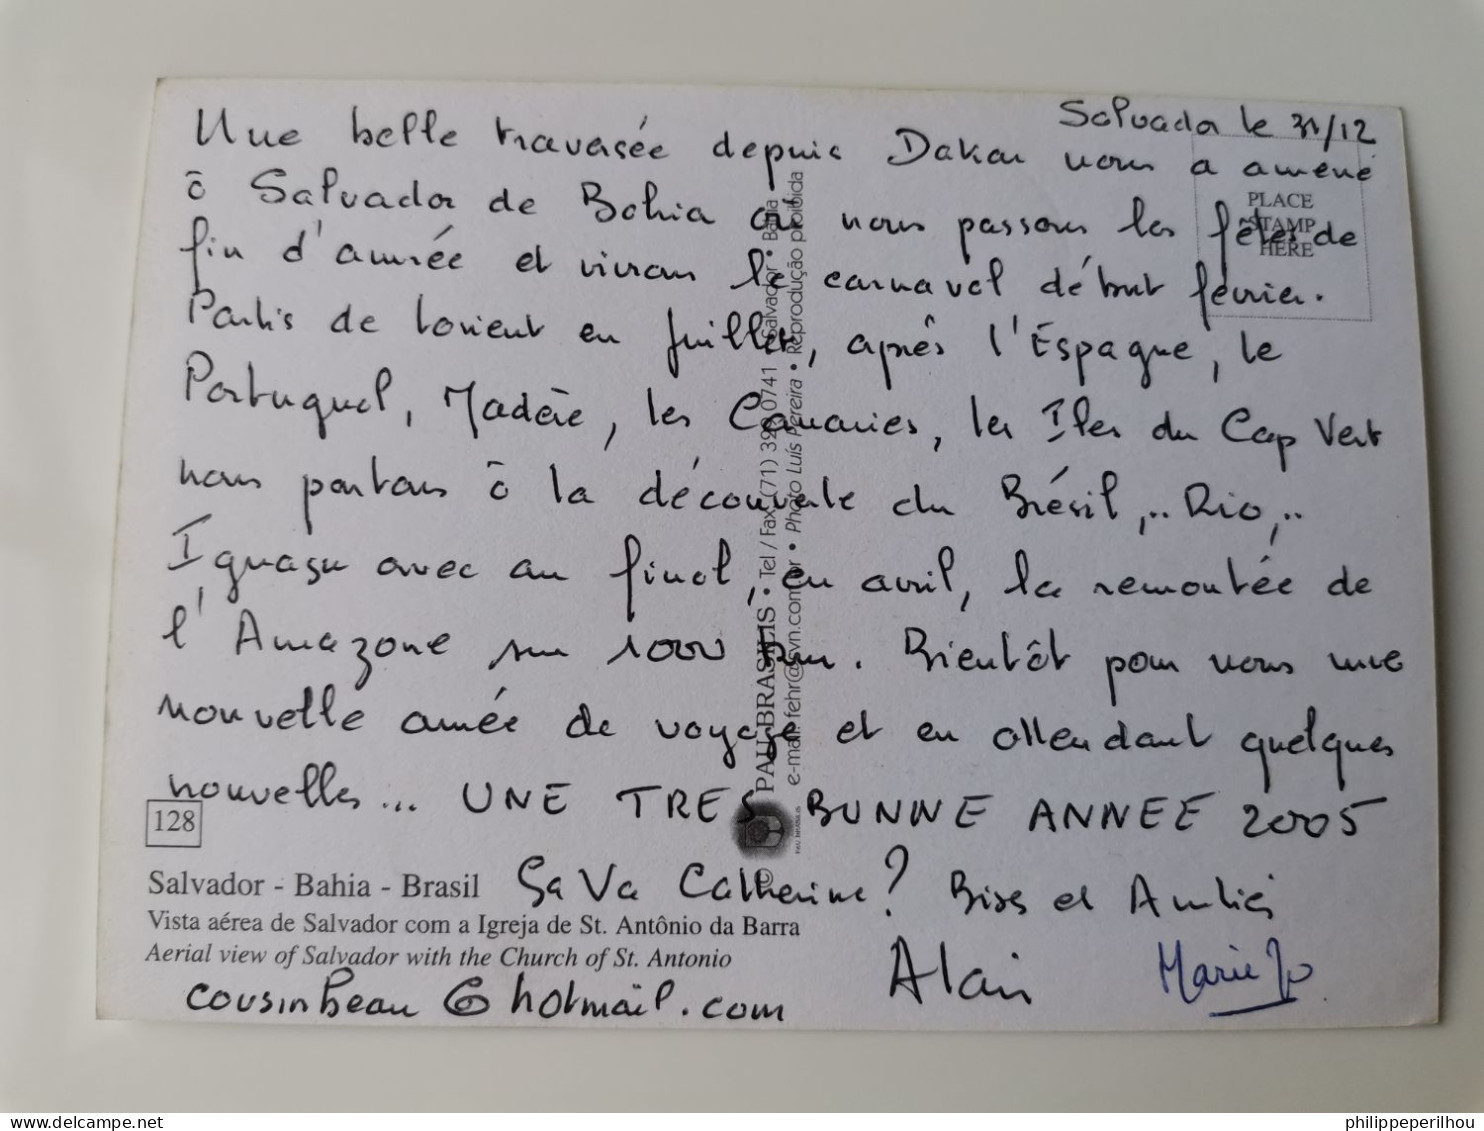 Salvador le 31/12
Une belle traversée depuis Dakar nous a amené
à Salvador de Bahia où nous passons les fêtes de
fin d'année et vivrons le carnaval début février.
Partis de Lorient en Juillet, après l'Espagne, le
Portugal, Madère, les Canaries, les Iles du Cap Vert
nous partons à la découverte du Brésil,.. Rio,..
Iguasu avec au final, en avril, la remontée de
l'Amazone sur 1000 km. Bientôt pour nous une
nouvelle année de voyage et en attendant quelques
nouvelles... UNE TRES BONNE ANNEE 2005
Sa Va Catherine? Bises et Amitiés
Alain Marie Jo
cousinbeau@hotmail.com
PLACE
STAMP
HERE
128
Salvador - Bahia - Brasil
Vista aérea de Salvador com a Igreja de St. Antônio da Barra
Aerial view of Salvador with the Church of St. Antonio
© PAU BRASILIS • Tel / Fax (71) 0741 • Salvador • Bahia
• Photo Luís Pereira • Reprodução proibida
PAU BRASILIS
delcampe.net
philippeperilhou